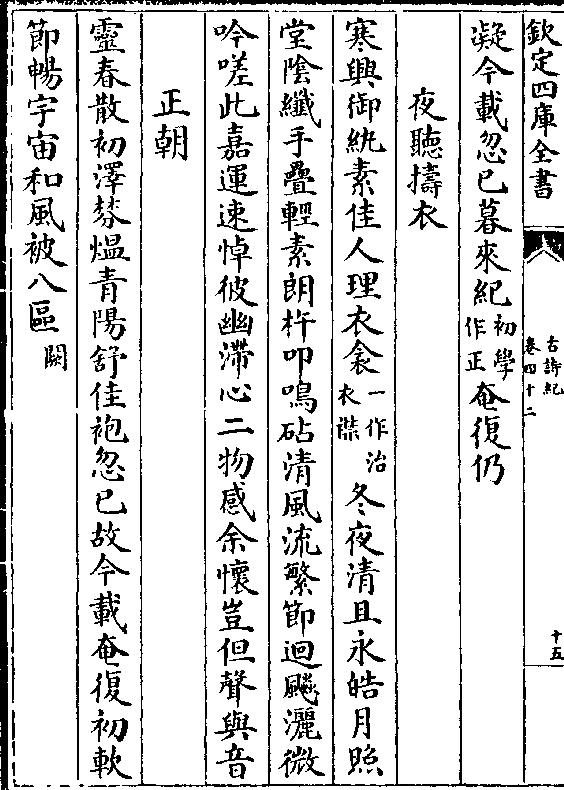 欽定四庫全書
古詩紀
卷四十二
十五
凝今載忽已暮來紀初學作正奄復仍
夜聽擣衣
寒興御紈素佳人理衣衾一作治衣襟冬夜清且永皓月照
堂陰纖手疊輕素朗杵叩鳴砧清風流繁節迴飈灑微
吟嗟此嘉運速悼彼幽滯心二物感余懷豈但聲與音
正朝
靈春散初澤棼熅青陽舒佳袍忽已故今載奄復初軟
節暢宇宙和風被八區闕